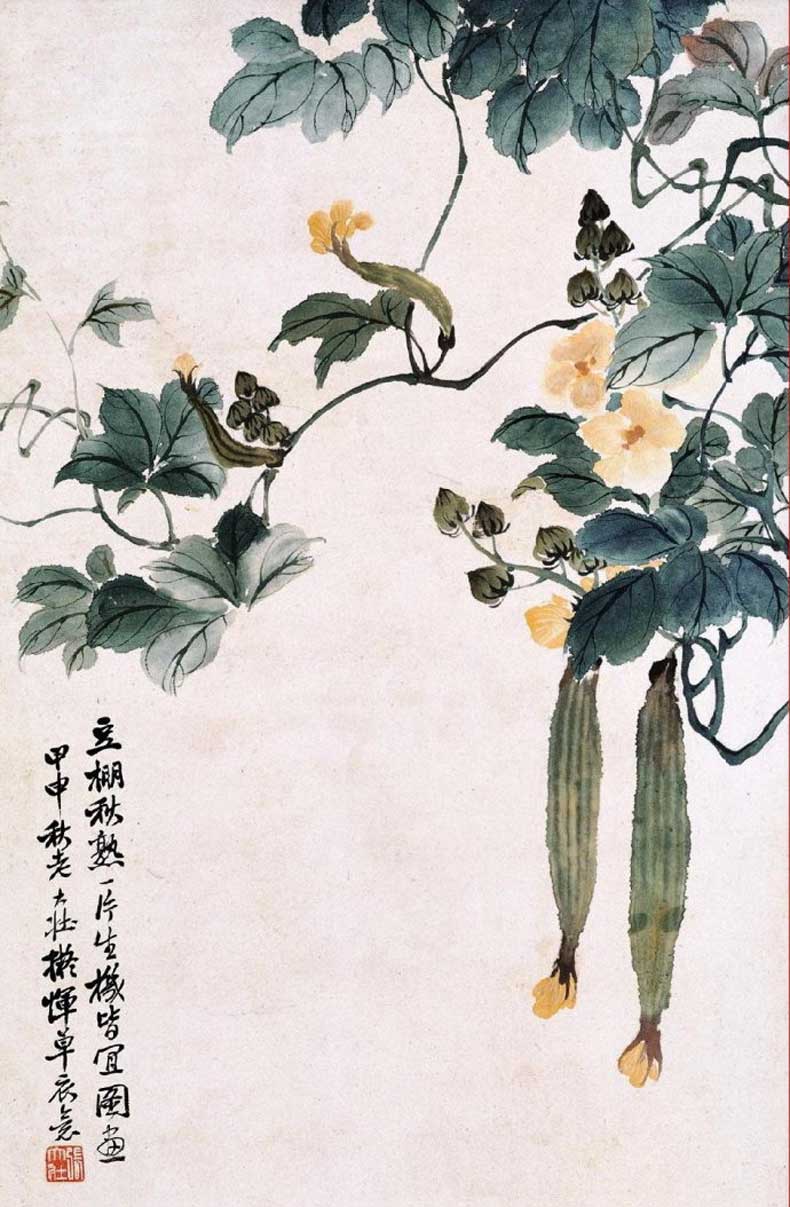 豆棚秋熟一片生機皆宜圖畫
甲申秋老大壯擬惲草衣意
張大壯